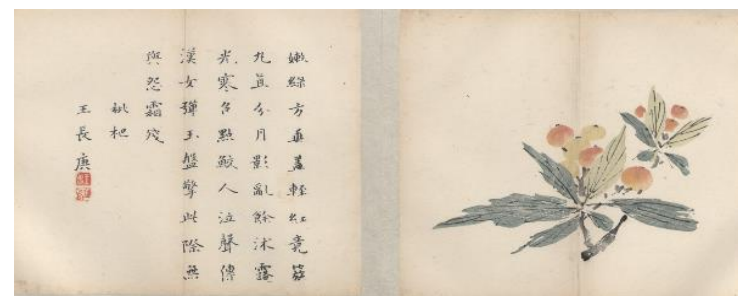 嫩綠方垂蓋輕紅竟簇
丸直分月影亂餘沐露
光寒色點鮫人泣聲傳
漢女彈玉盤擎此際無
與怨霜殘
枇杷
王長庚